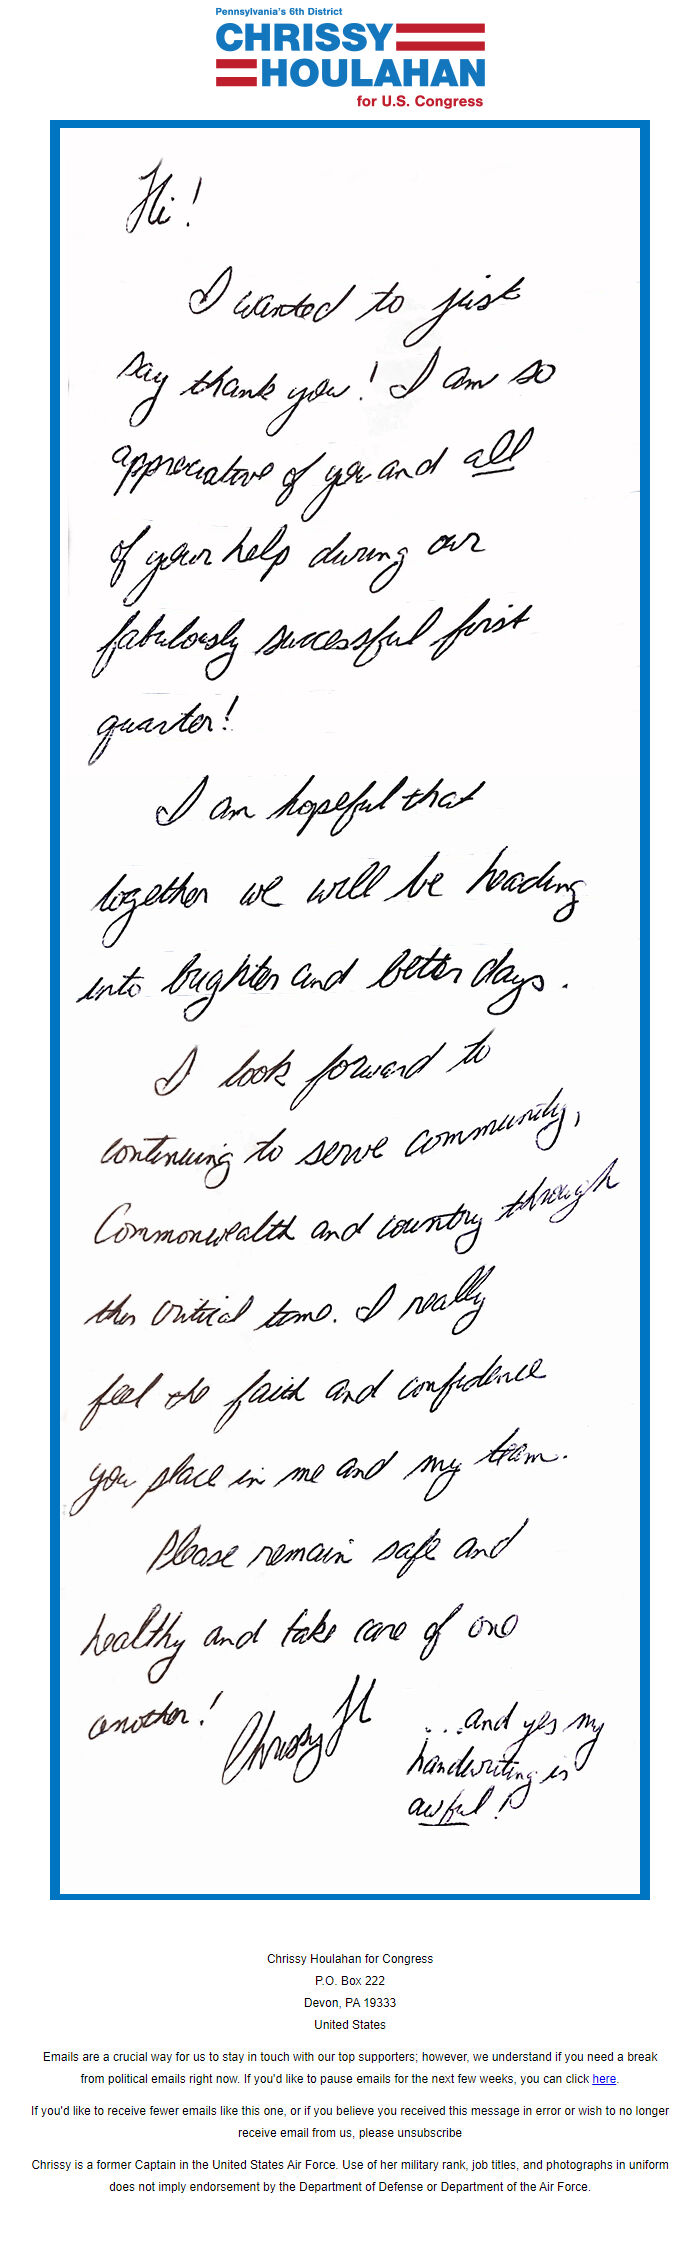 Pennsylvania's 6th District
CHRISSY
HOULAHAN
for U.S. Congress
Hi!
I wanted to just
say thank you! I am so
appreciative of you and all
of your help during our
fabulously successful first
quarter!
I am hopeful that
together we will be heading
into brighter and better days.
I look forward to
continuing to serve community,
Commonwealth and country through
this critical time. I really
feel the faith and confidence
you place in me and my team.
Please remain safe and
healthy and take care of one
another!
Chrissy H
...and yes my
handwriting is
awful!
Chrissy Houlahan for Congress
P.O. Box 222
Devon, PA 19333
United States
Emails are a crucial way for us to stay in touch with our top supporters; however, we understand if you need a break
from political emails right now. If you'd like to pause emails for the next few weeks, you can click here.
If you'd like to receive fewer emails like this one, or if you believe you received this message in error or wish to no longer
receive email from us, please unsubscribe
Chrissy is a former Captain in the United States Air Force. Use of her military rank, job titles, and photographs in uniform
does not imply endorsement by the Department of Defense or Department of the Air Force.